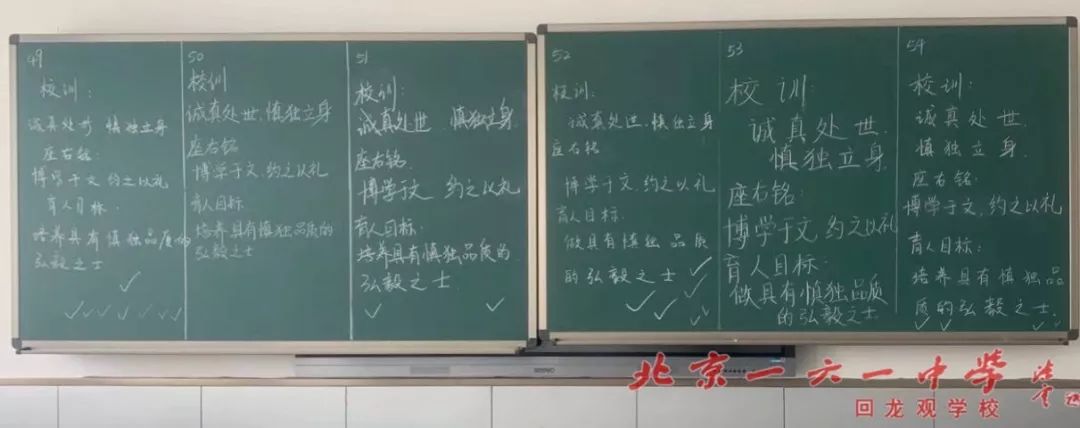 49
校训:
诚真处世 慎独立身
座右铭:
博学于文 约之以礼
育人目标.
培养具有慎独品质的
弘毅之士
50
校训
诚真处世,慎独立身
座右铭
博学于文,约之以礼
育人目标
培养具有慎独品质的
弘毅之士
51
校训:
诚真处世 慎独立身.
座右铭.
博学于文 约之以礼
育人目标:
培养具有慎独品质的
弘毅之士.
52
校训:
诚真处世,慎独立身
座右铭
博学于文,约之以礼
育人目标:
做具有慎独品质
的弘毅之士
53
校训:
诚真处世.
慎独立身
座右铭:
博学于文 约之以礼
育人目标:
做具有慎独品质
的弘毅之士
54
校训:
诚真处世.
慎独立身.
座右铭:
博学于文,约之以礼
育人目标:
培养具有慎独品
质的弘毅之士.
北京一六一中学
回龙观学校